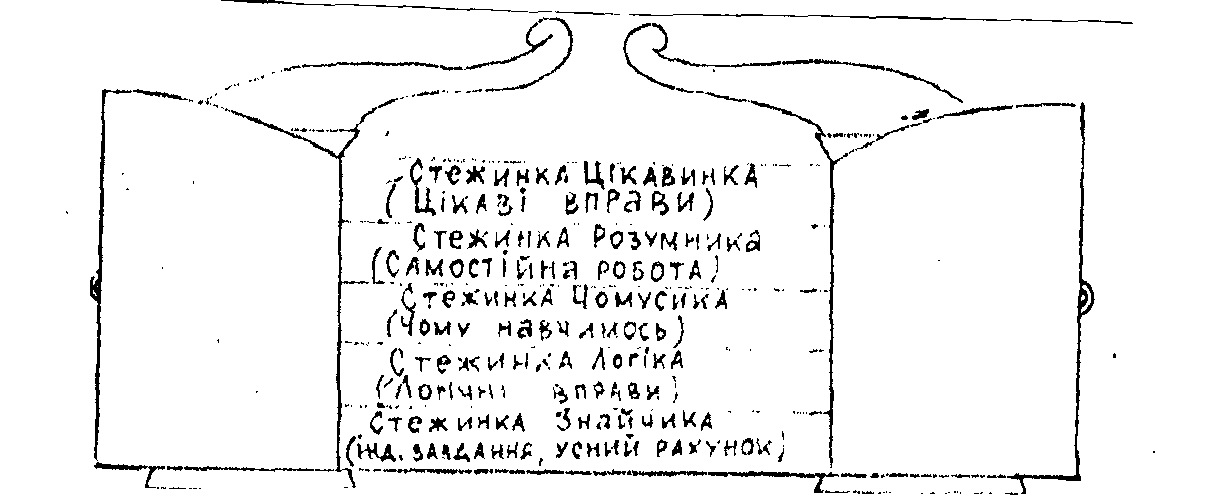 Стежинка Цікавинка
(Цікаві вправи)
Стежинка Розумника
(Самостійна робота)
Стежинка Чомусика
(Чому навчимось)
Стежинка Логіка
(Логічні вправи)
Стежинка Знайчика
(інд. завдання, усний рахунок)